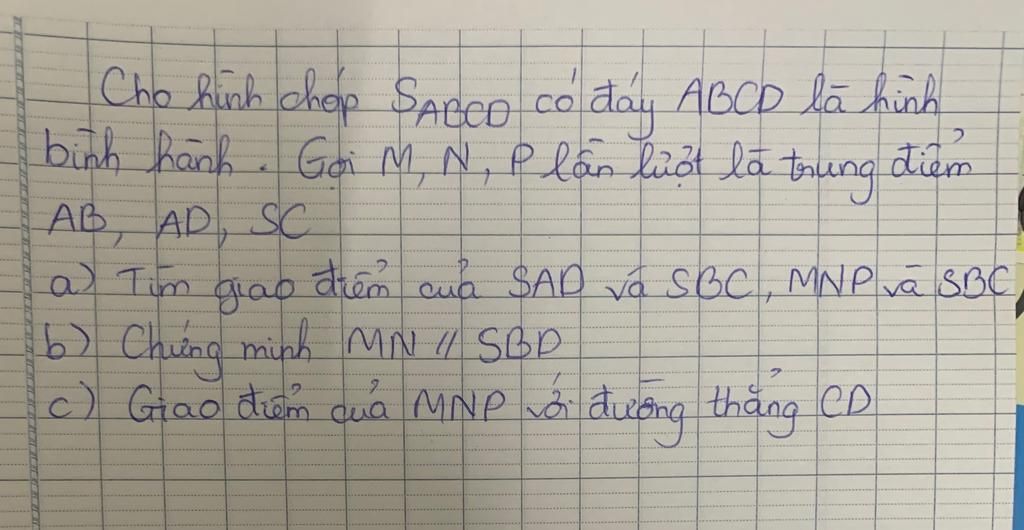 Cho hình chóp SABCD có đáy ABCD là hình
bình hành. Gọi M, N, P lần lượt là trung điểm
AB, AD, SC
a) Tìm giao điểm của SAD và SBC, MNP và SBC
b) Chứng minh MN // SBD
c) Giao điểm của MNP với đường thẳng CD